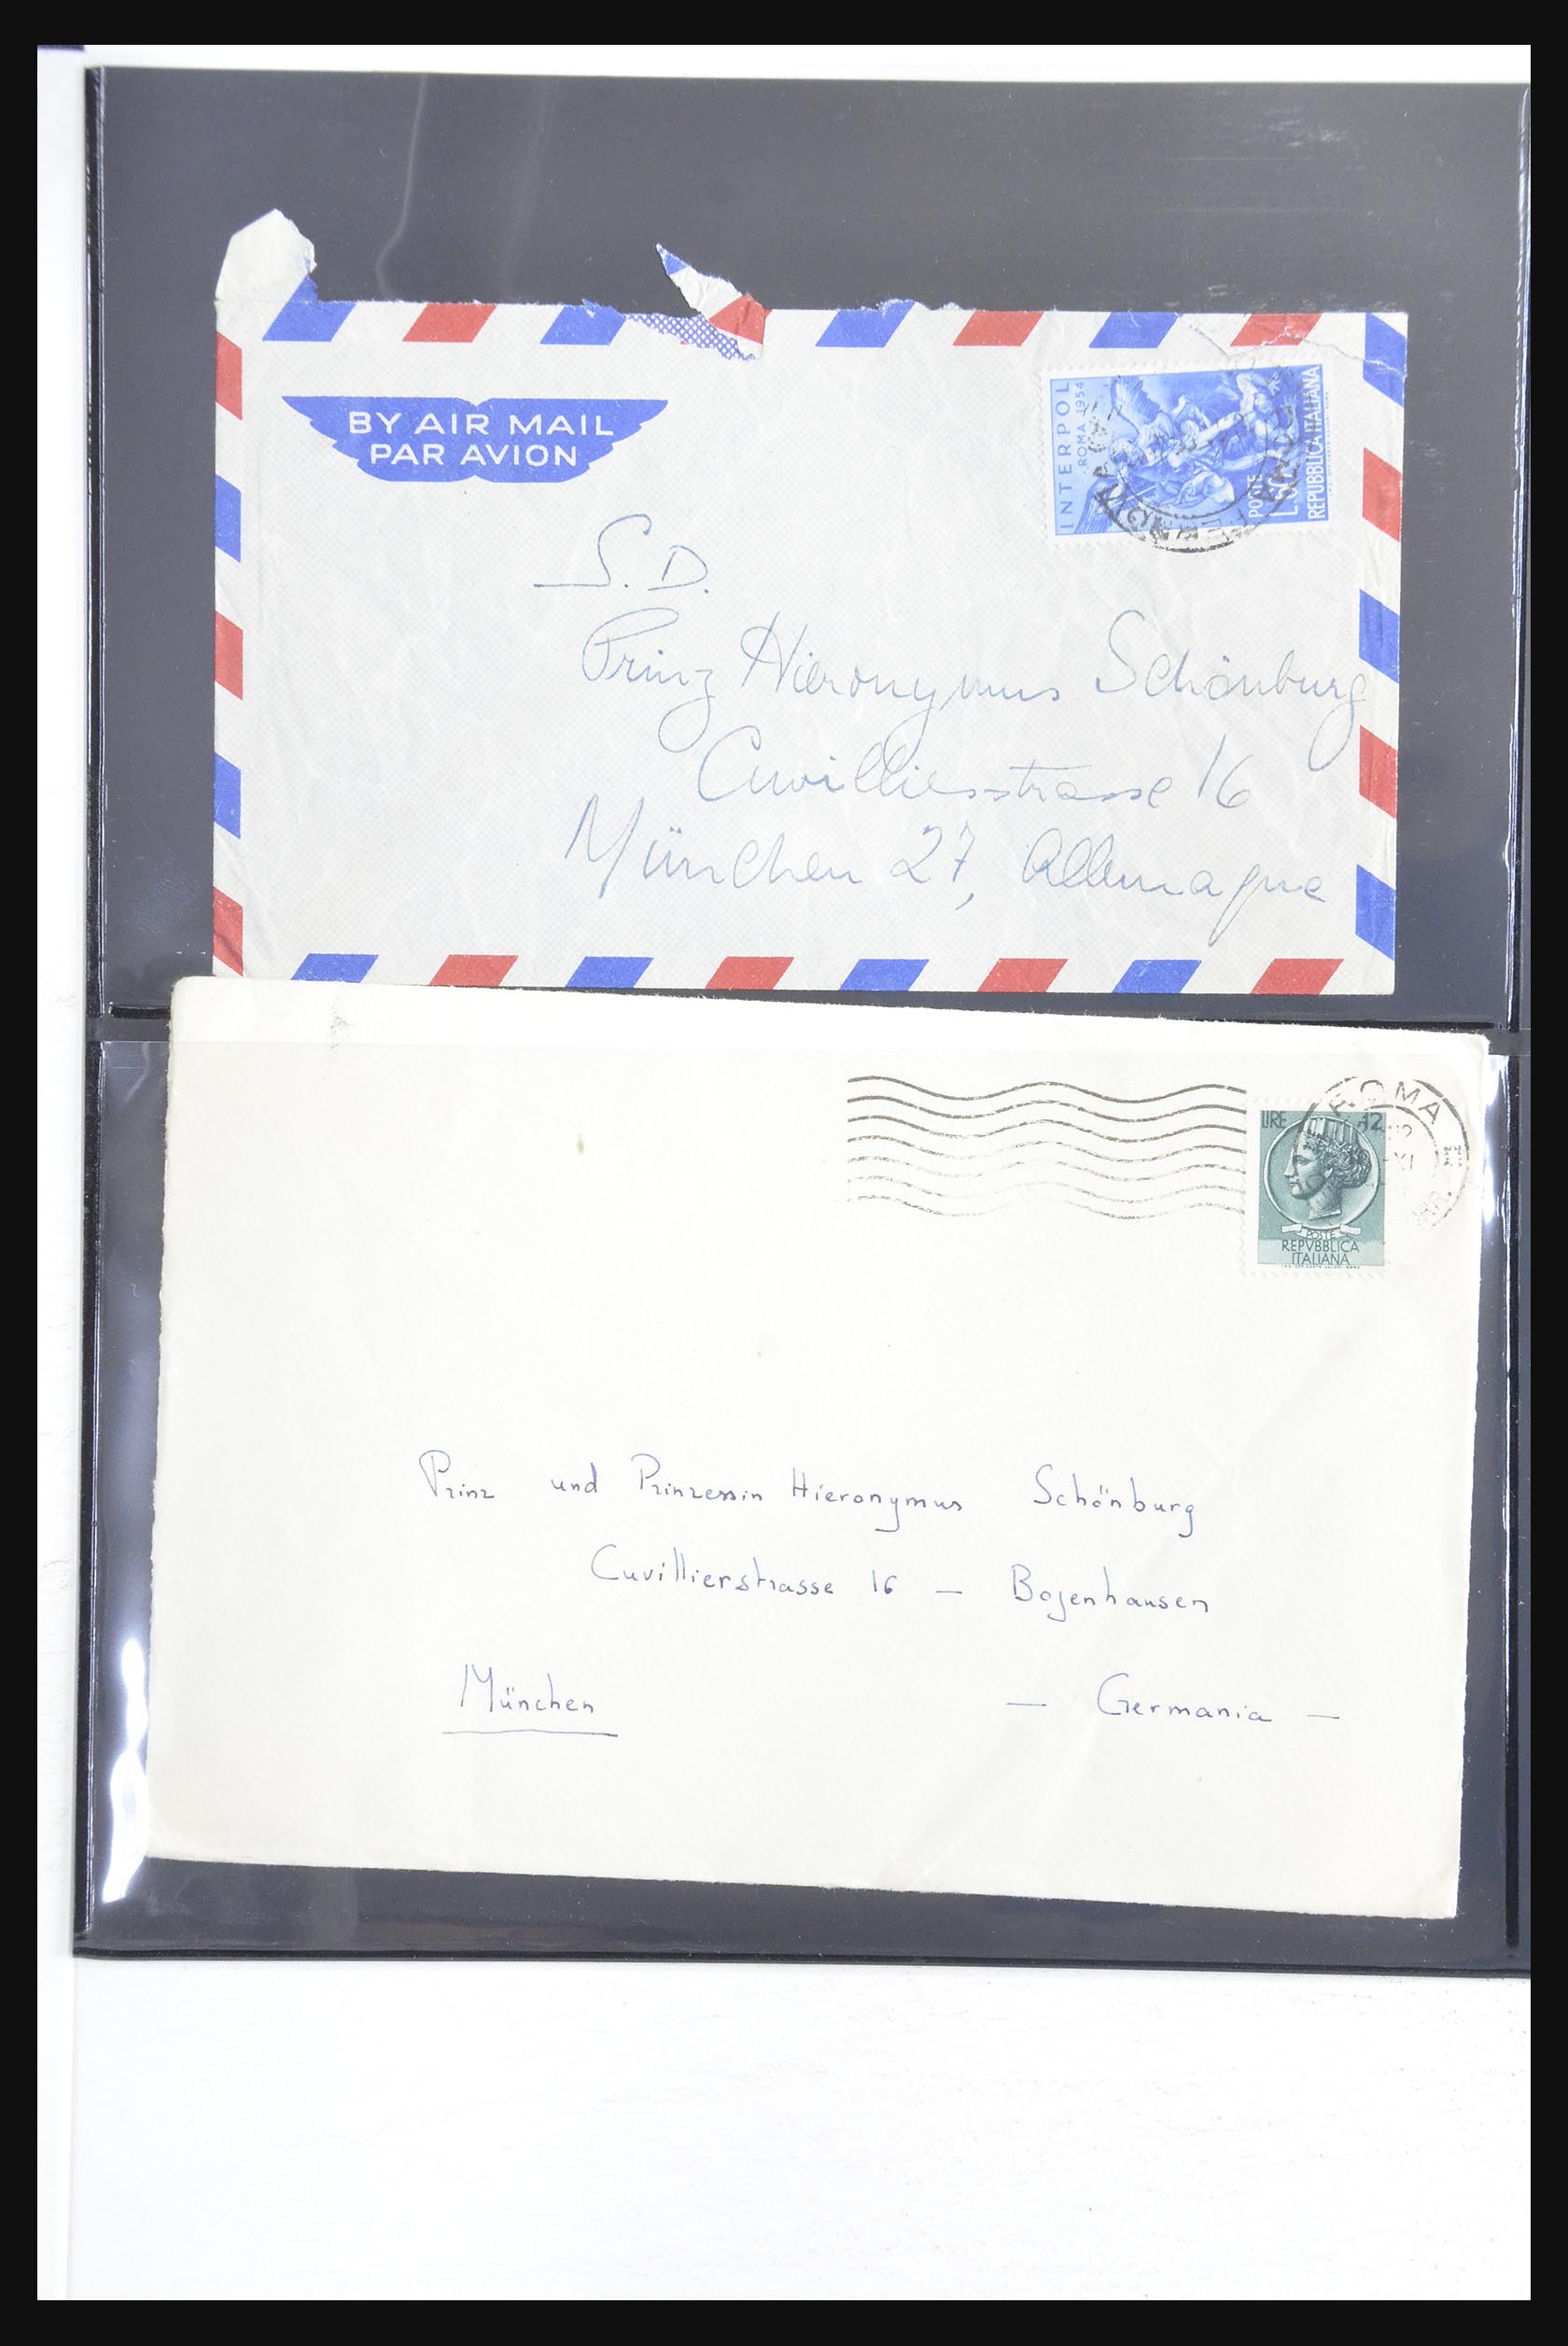 BY AIR MAIL
PAR AVION
INTERPOL
ROMA 1954
POSTE
REPUBBLICA ITALIANA
S. D.
Prinz Hieronymus Schönburg
Cuvilliesstrasse 16
München 27, Allemagne
ROMA
LIRE 12
POSTE
REPVBBLICA
ITALIANA
Prinz und Prinzessin Hieronymus Schönburg
Cuvillierstrasse 16 — Bogenhausen
München — Germania —